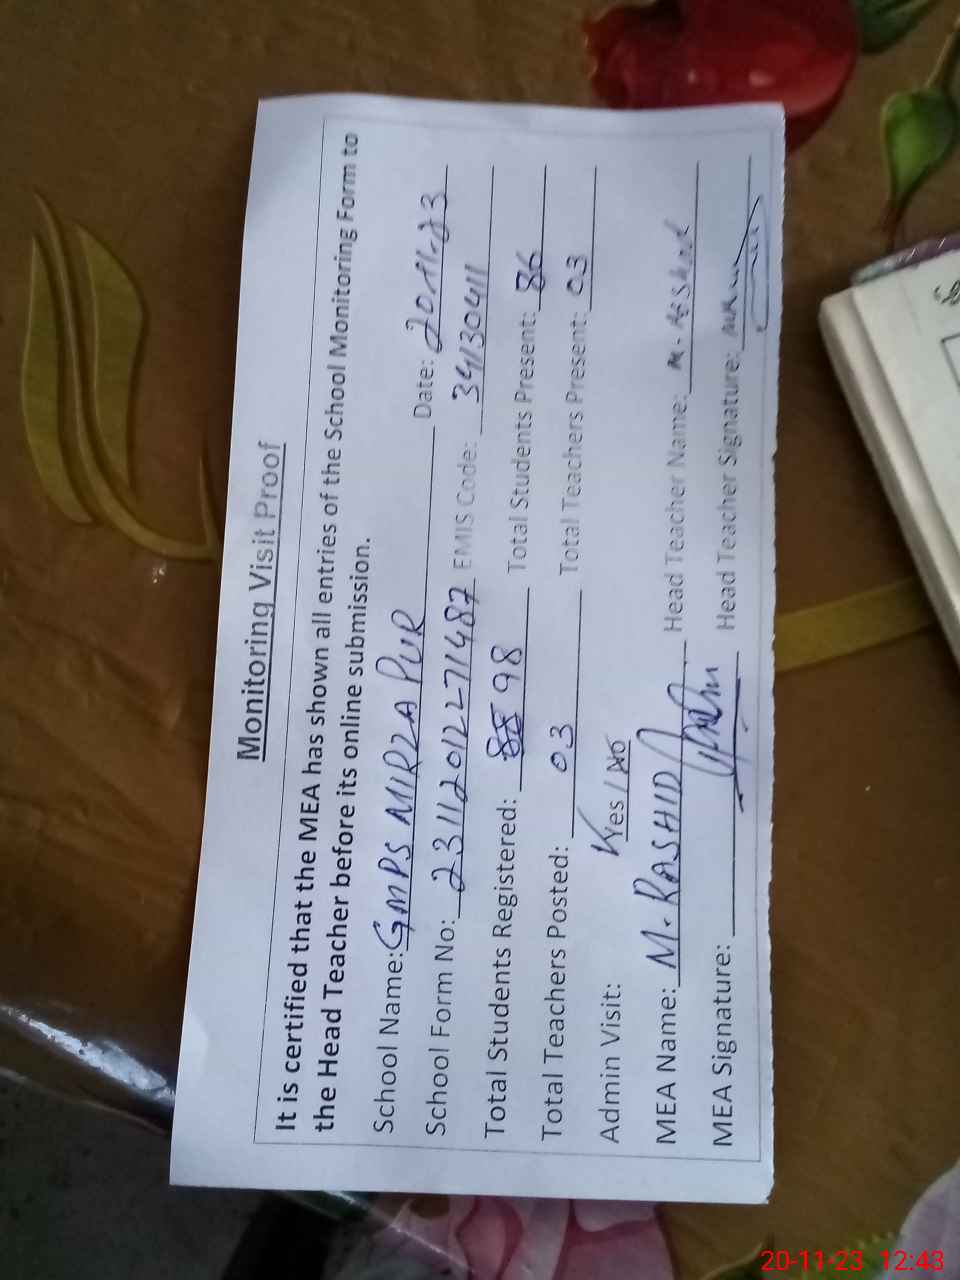 Monitoring Visit Proof
It is certified that the MEA has shown all entries of the School Monitoring Form to
the Head Teacher before its online submission.
School Name: GMPS MIRZA PUR Date: 20-11-23
School Form No: 231120122271487 EMIS Code: 34130411
Total Students Registered: 98 Total Students Present: 86
Total Teachers Posted: 03 Total Teachers Present: 03
Admin Visit: Yes / No
MEA Name: M. RASHID Head Teacher Name: M. Arshad
MEA Signature: Head Teacher Signature:
20-11-23 12:43